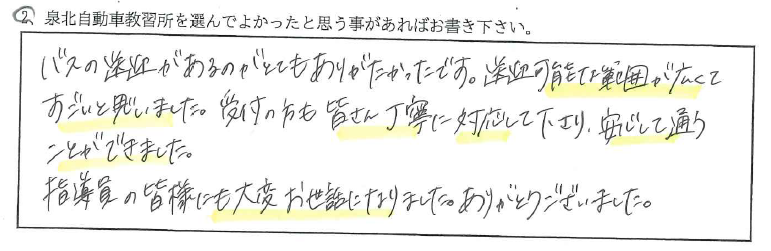 ② 泉北自動車教習所を選んでよかったと思う事があればお書き下さい。
バスの送迎があるのがとてもありがたかったです。送迎可能な範囲が広くて
すごいと思いました。受付の方も皆さん丁寧に対応して下さり、安心して通う
ことができました。
指導員の皆様にも大変お世話になりました。ありがとうございました。